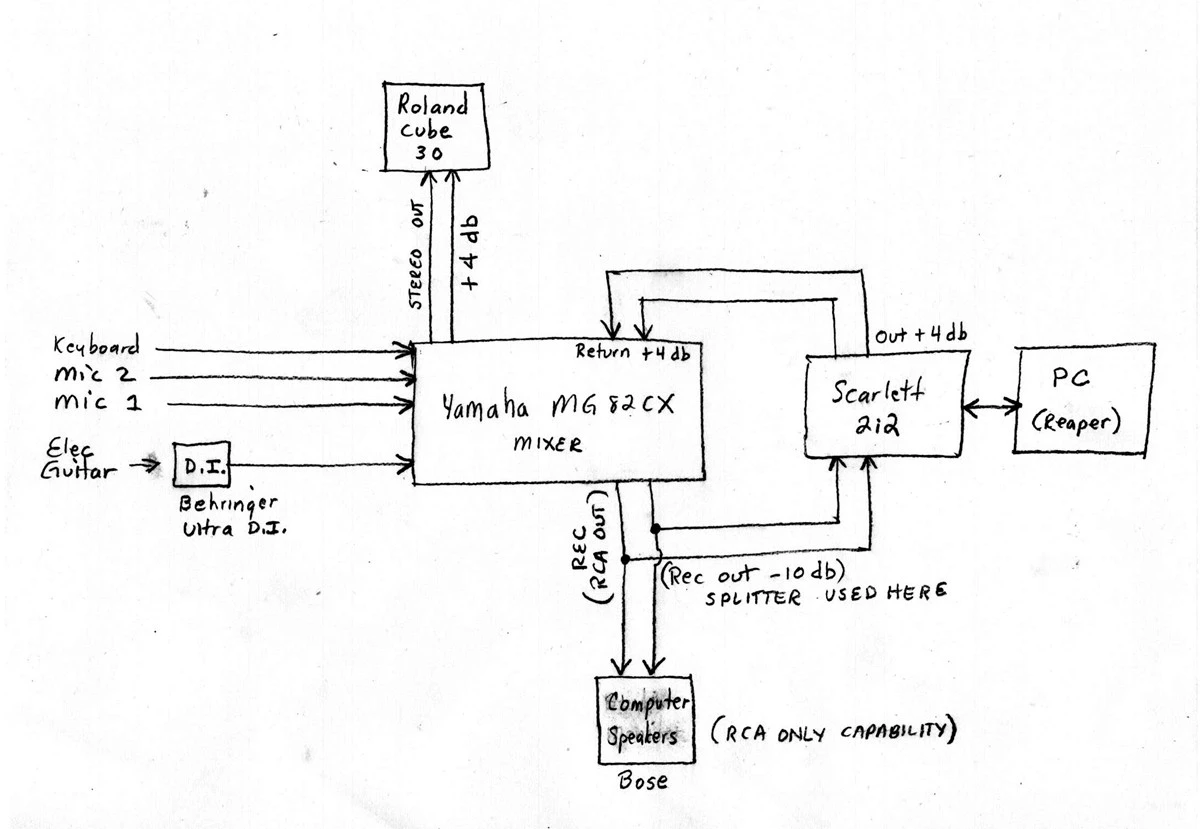 Roland
Cube
30
STEREO OUT
+4 db
Keyboard
mic 2
mic 1
Elec
Guitar
D.I.
Behringer
Ultra D.I.
Return +4 db
Yamaha MG 82CX
MIXER
Out +4 db
Scarlett
2i2
PC
(Reaper)
REC
(RCA OUT)
(Rec out -10 db)
SPLITTER USED HERE
Computer
Speakers
Bose
(RCA ONLY CAPABILITY)